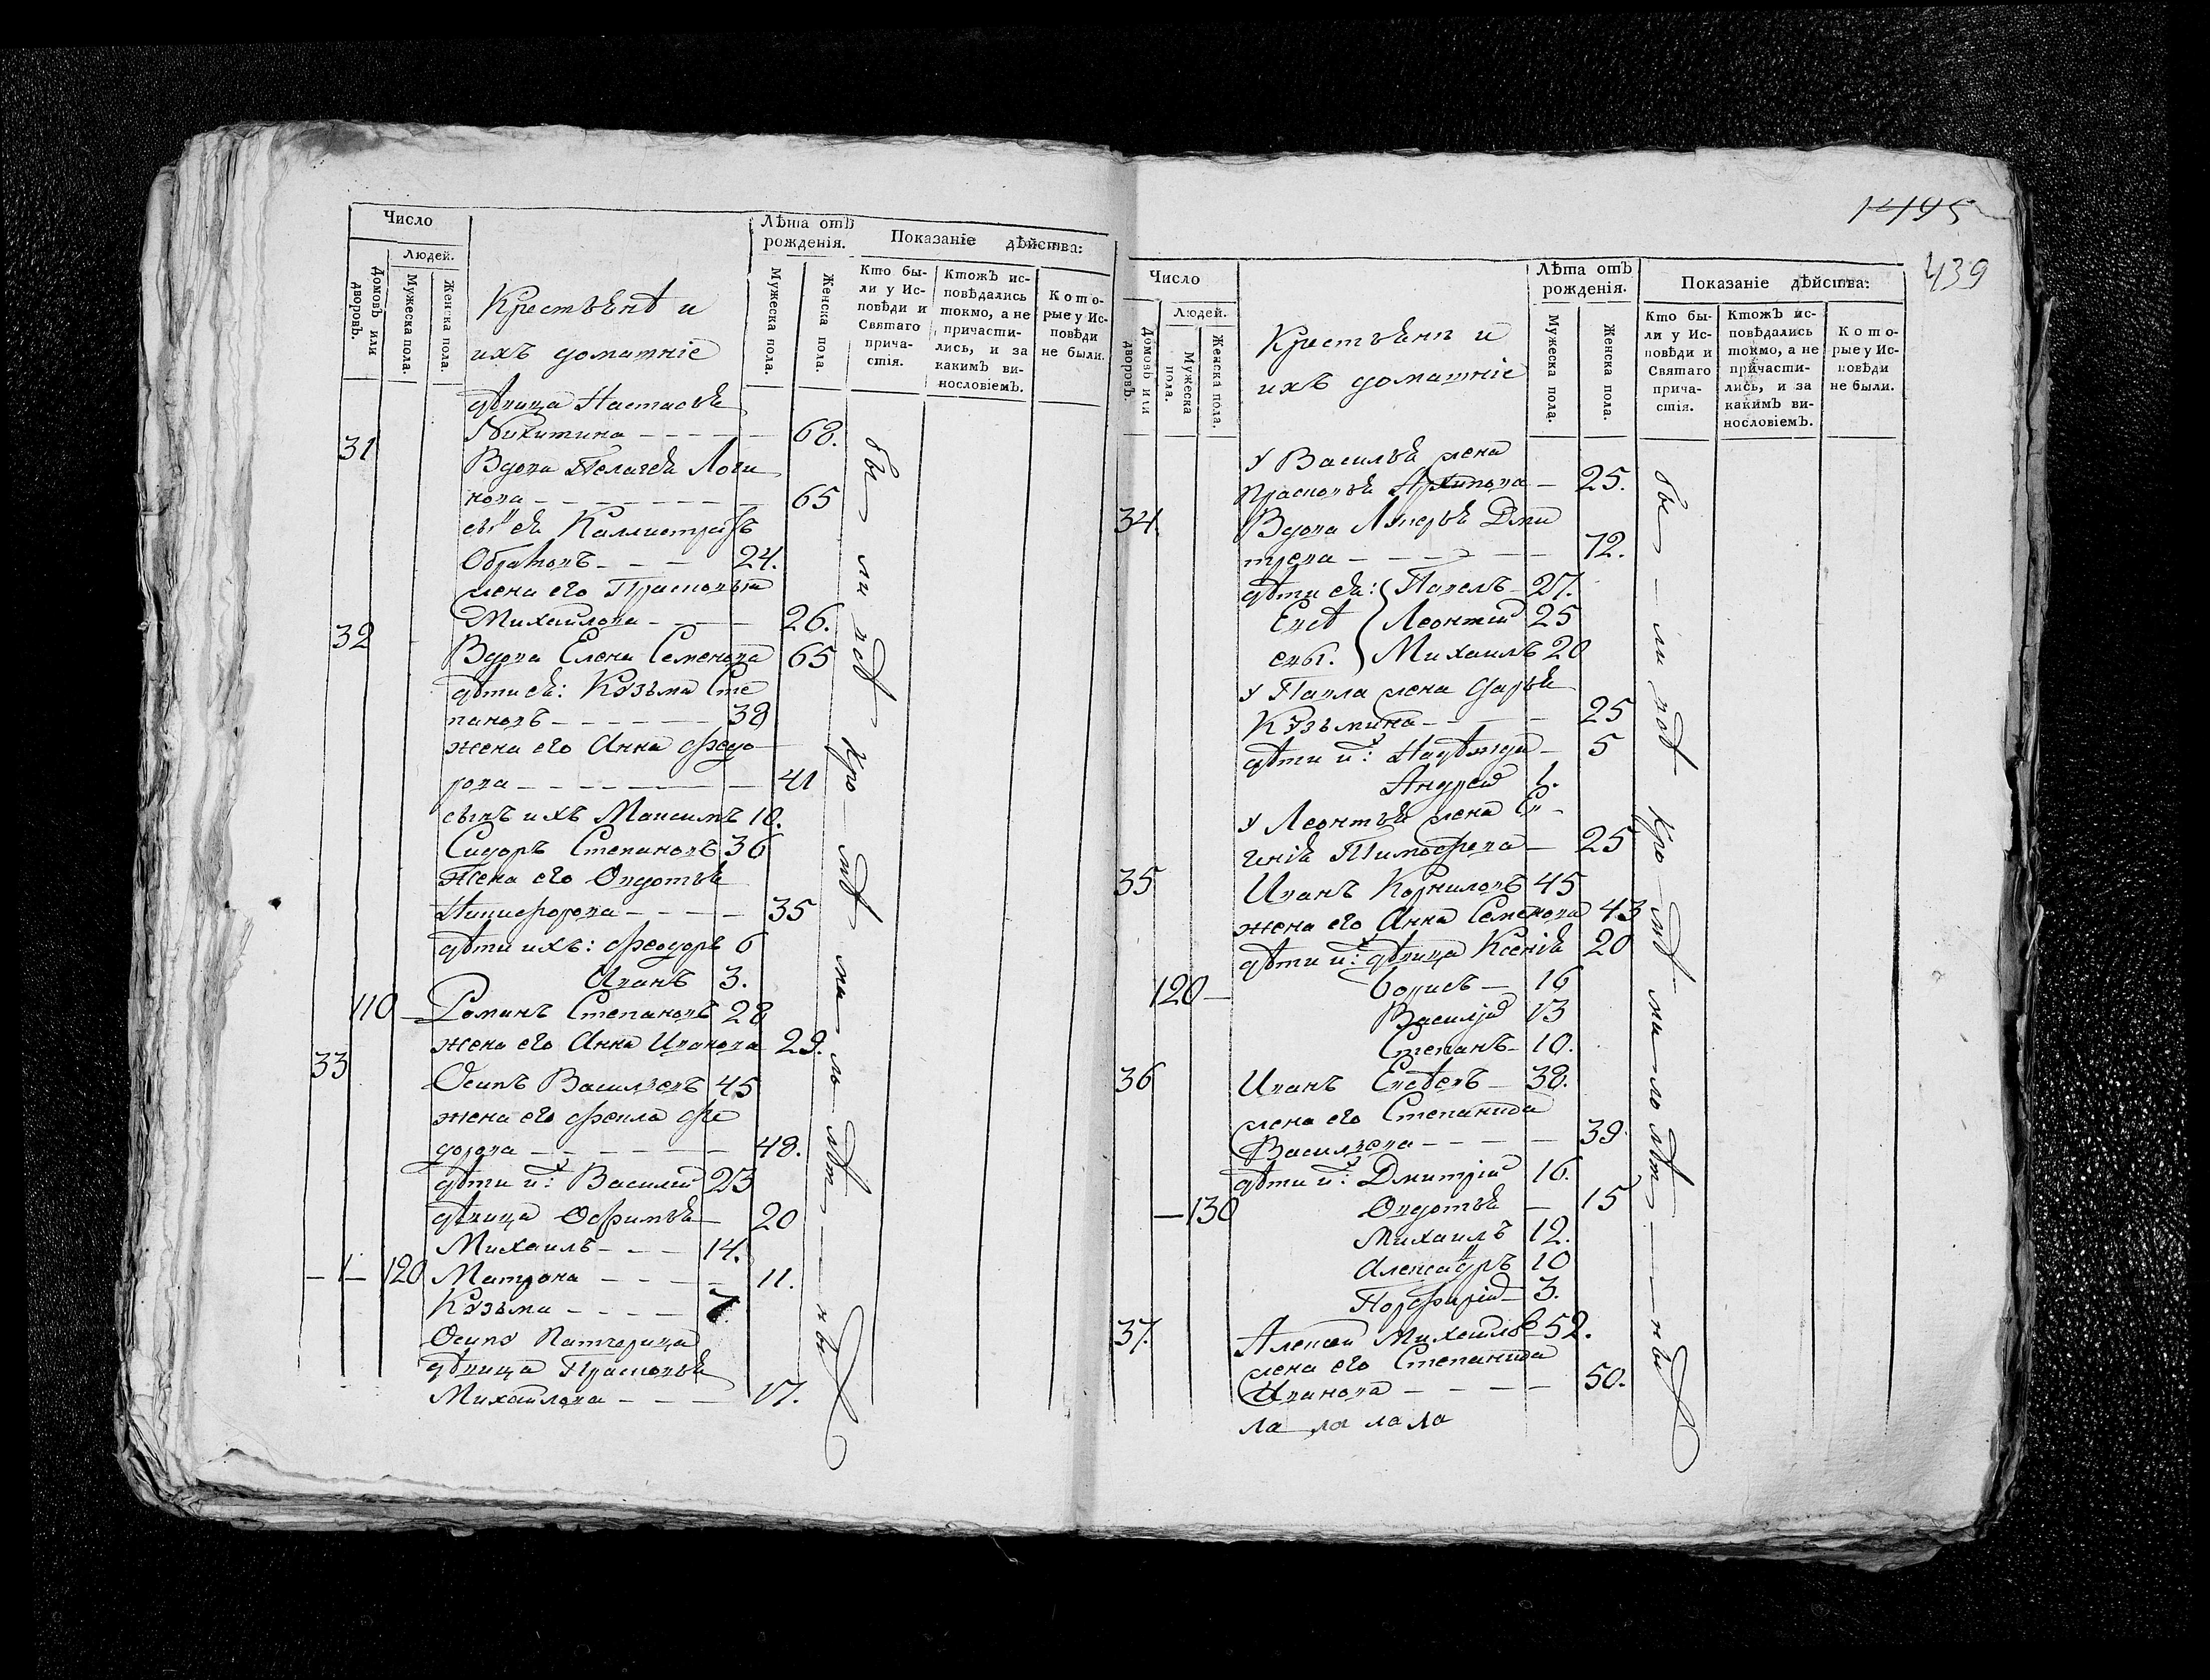 Число
Людей.
Домовъ или дворовъ.
Мужеска пола.
Женска пола.
Крестьянѣ и
ихъ домашніе
Лѣта отъ
рожденія.
Мужеска пола.
Женска пола.
Показаніе дѣйства:
Кто бы-
ли у Ис-
повѣди и
Святаго
прича-
стія.
Ктожъ ис-
повѣдались
токмо, а не
причасти-
лись, и за
какимъ ви-
нословіемъ.
Кото-
рые у Ис-
повѣди
не были.
дѣвица Настасья
Никитина 68.
31 Вдова Пелагея Логи
нова 65
сынъ ея Каллистратъ
24.
жена его Прасковья
Михайлова 26.
32 Вдова Елена Семенова 65
дѣти ея: Кузьма Сте
пановъ 38
жена его Анна Федо
рова 41
сынъ ихъ Максимъ 10.
Сидоръ Степановъ 36
Жена его Овдотья
Никифорова 35
дѣти ихъ: Феодоръ 6
Иванъ 3.
110 Романъ Степановъ 28
жена его Анна Иванова 29.
33 Осипъ Васильевъ 45
жена его Фекла Фе
дорова 48.
дѣти их: Василий 23
дѣвица Офимья 20
Михаилъ 14.
1 120 Матрона 11.
Кузьма 7
Осипа
дѣвица Прасковья
Михайлова 17.
бы ли всѣ кро мѣ ма ло лѣт ны
1495
439
Число
Людей.
Домовъ или дворовъ.
Мужеска пола.
Женска пола.
Крестьянѣ и
ихъ домашніе
Лѣта отъ
рожденія.
Мужеска пола.
Женска пола.
Показаніе дѣйства:
Кто бы-
ли у Ис-
повѣди и
Святаго
прича-
стія.
Ктожъ ис-
повѣдались
токмо, а не
причасти-
лись, и за
какимъ ви-
нословіемъ.
Кото-
рые у Ис-
повѣди
не были.
у Василья жена
Прасковья Архипова 25.
34. Вдова Лукерья Дми
трева 72.
дѣти ея: Павелъ 27.
Евсѣ Леонтий 25
евы. Михаилъ 20
у Павла жена Дарья
Кузьмина 25
дѣти их: Надѣжда 5
Андрей 1.
у Леонтья жена Ев
генія Тимофеева 25
35 Иванъ Корниловъ 45
жена его Анна Семенова 43
дѣти их: дѣвица Ксенія 20
120 Борисъ 16
Василій 13
Степанъ 10.
36 Иванъ Евсѣевъ 38.
жена его Степанида
Васильева 39
дѣти их: Дмитрій 16.
130 Овдотья 15
Михаилъ 12.
Александръ 10
Порфирій 3.
37. Алексей Михайловъ 52.
жена его Степанида
Иванова 50.
ла ла ла ла
бы ли всѣ кро мѣ ма ло лѣт ны